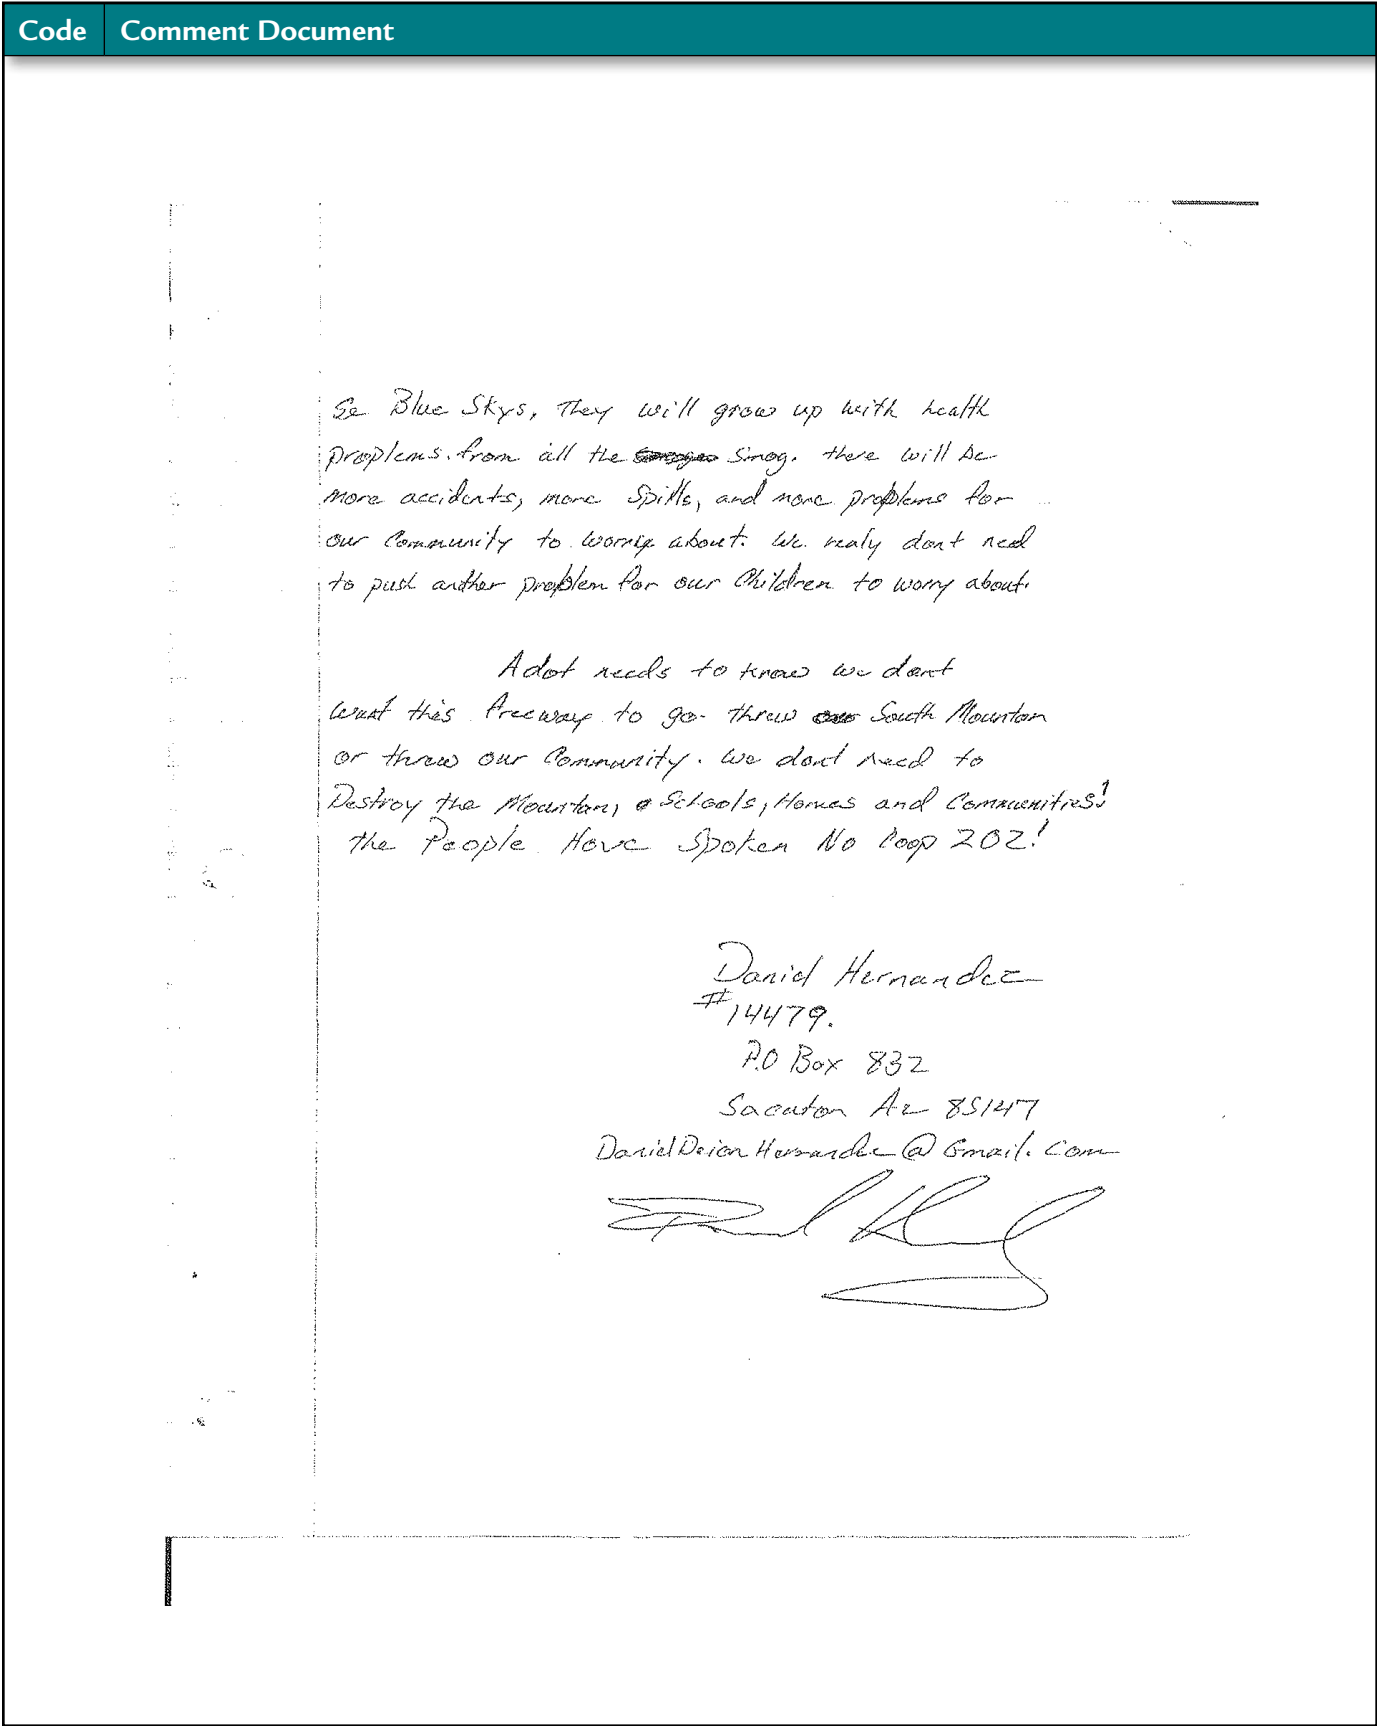 Code Comment Document
Se Blue Skys, they will grow up with health
proplems. from all the Smog. there will be
more accidents, more Spills, and more problems for
our Community to worrie about. We realy dont need
to push anther problem for our Children to worry about.
Adot needs to know we dont
want this freeway to go threw South Mountan
or threw our Community. We dont need to
Destroy the Mountan, Schools, Homes and Communities!
the People Have Spoken No loop 202!
Daniel Hernandez
#14479.
P.O Box 832
Sacaton Az 85147
@ Gmail. Com